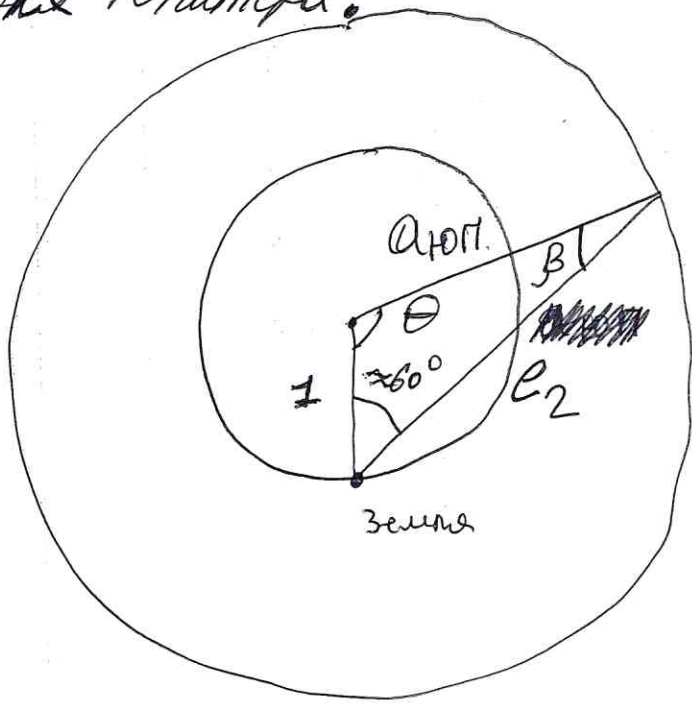 Юпитера.
aюп.
β
θ
1
≈60°
e₂
Земля